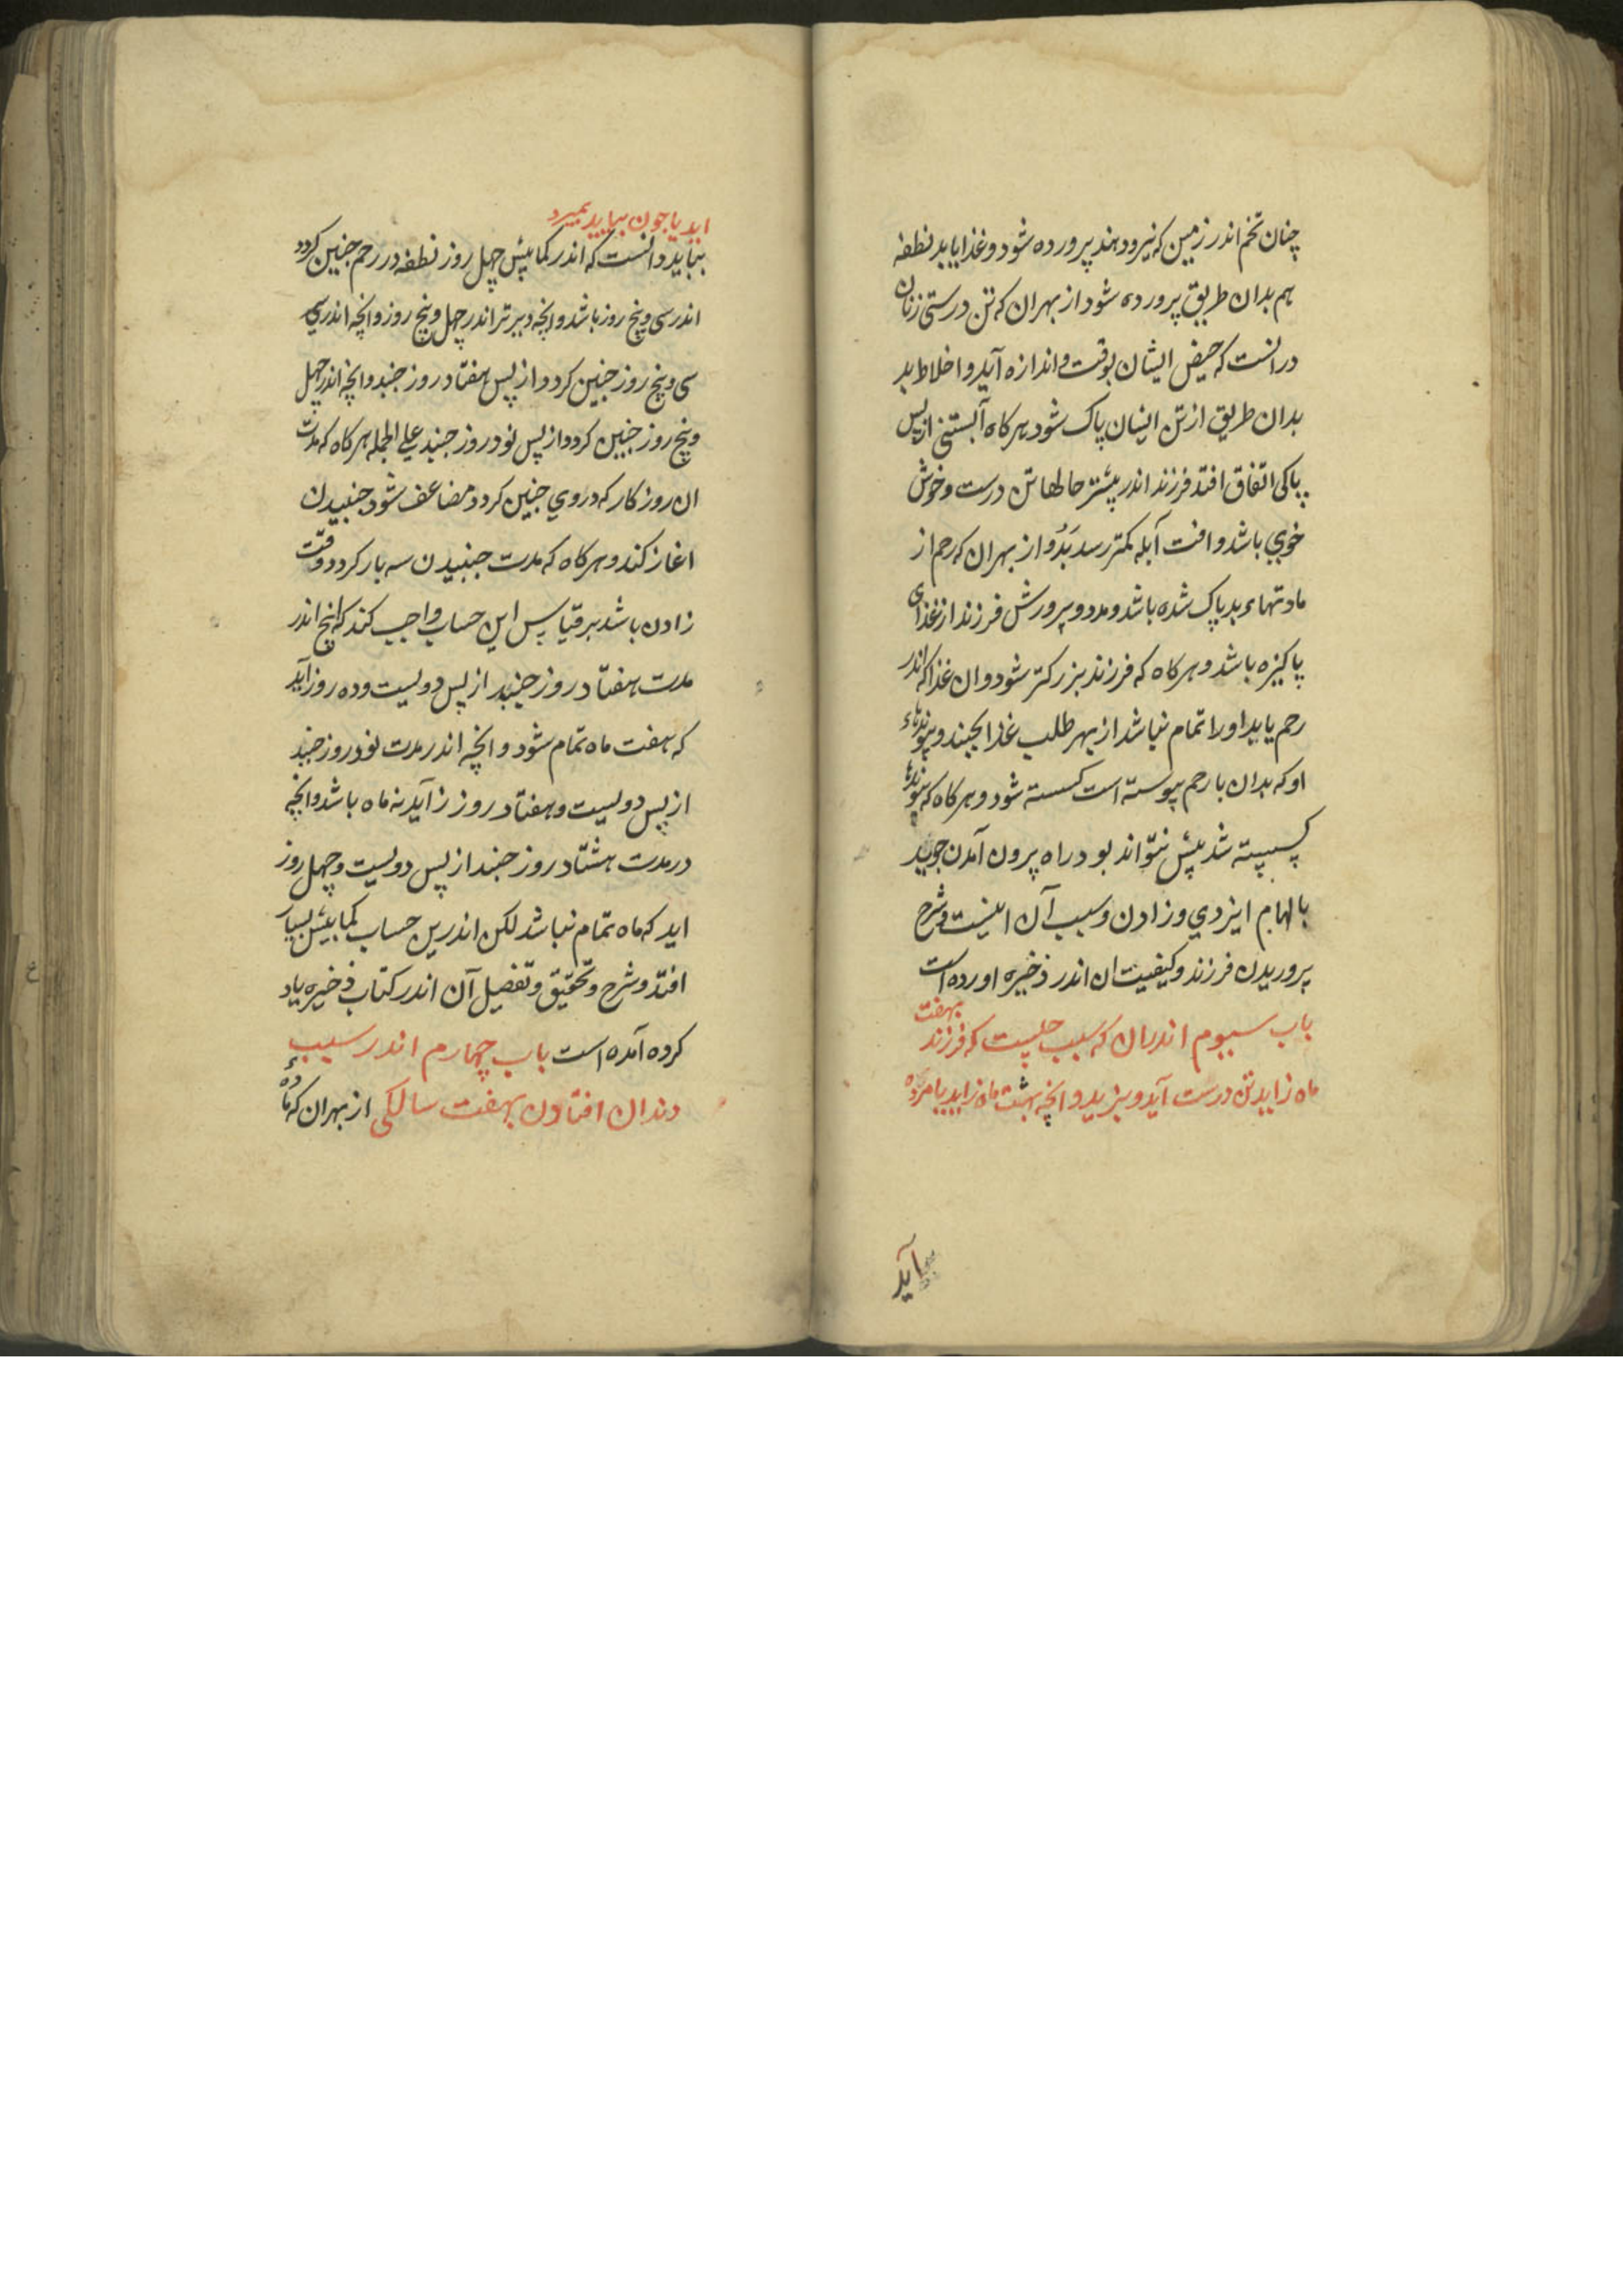 چنان تخم اندر زمین که نیرو دهند پرورده شود و غذا یابد نطفه
هم بدان طریق پرورده شود از بهر ان که تن درستی زنان
در انست که حیض ایشان بوقت و اندازه آید و اخلاط بد
بدان طریق از تن ایشان پاک شود هر کاه آبستنی از پس
پاکی اتفاق افتد فرزند اندر بیشتر حالها تن درست و خوش
خوی باشد و افت آبله کمتر رسد بَدُو از بهر ان که رحم از
مادتهاء بد پاک شده باشد و مدد و پرورش فرزند از غذای
پاکیزه باشد و هر کاه که فرزند بزرکتر شود و ان غذا که اندر
رحم یابد او را تمام نباشد از بهر طلب غذا بجنبد و پیوندهاء
او که بدان با رحم پیوسته است کسسته شود و هر کاه که پیوندها
کسسته شد بیش نتواند بود راه بیرون آمدن جوید
بالهام ایزدی و زادن و سبب آن اینست و شرح
پروریدن فرزند و کیفیت ان اندر ذخیره اورده است
باب سیوم اندران که سبب چیست که فرزند بهفت
ماه زاید تن درست آید و بزید و انچه بهشت ماه زاید یا مرده
آید
اید یا چون بیاید بمیرد
بباید دانست که اندر کمابیش چهل روز نطفه در رحم جنین کردد
اندر سی و پنج روز باشد و انچه دیرتر اندر چهل و پنج روز و انچه اندر سی
سی و پنج روز جنین کردد از پس هفتاد روز جنبد و انچه اندر چهل
و پنج روز جنین کردد از پس نود روز جنبد علی الجمله هر کاه که مدت
ان روزکار که در وی جنین کردد مضاعف شود جنبیدن
اغاز کند و هر کاه که مدت جنبیدن سه بار کردد وقت
زادن باشد بر قیاس این حساب واجب کند که انچ اندر
مدت هفتاد روز جنبد از پس دویست و ده روز آید
که هفت ماه تمام شود و انچه اندر مدت نود روز جنبد
از پس دویست و هفتاد روز زاید نه ماه باشد و انچه
در مدت هشتاد روز جنبد از پس دویست و چهل روز
اید که ماه تمام نباشد لکن اندرین حساب کمابیش بسیار
افتد و شرح و تحقیق و تفصیل آن اندر کتاب ذخیره یاد
کرده آمده است باب چهارم اندر سبب
دندان افتادن بهفت سالکی از بهر ان که